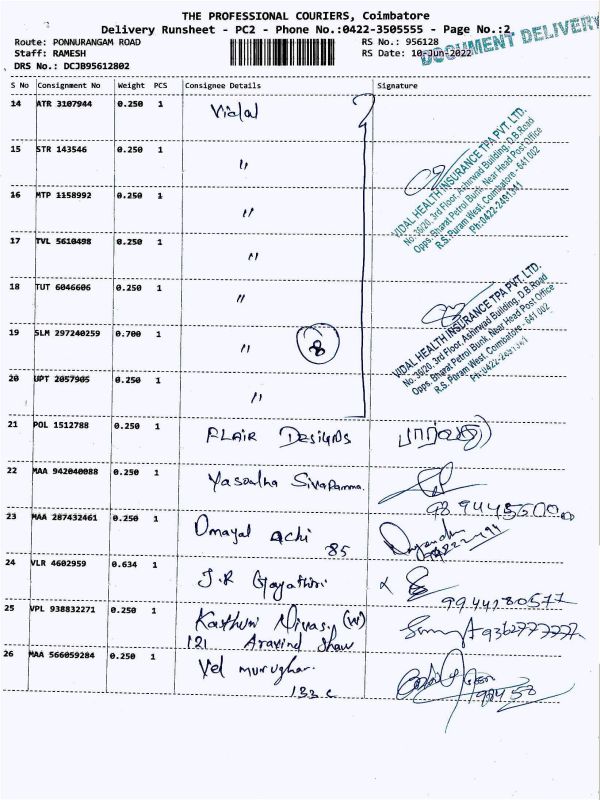 THE PROFESSIONAL COURIERS, Coimbatore
Delivery Runsheet - PC2 - Phone No.:0422-3505555 - Page No.:2
DOCUMENT DELIVERY
Route: PONNURANGAM ROAD RS No.: 956128
Staff: RAMESH RS Date: 10-Jun-2022
DRS No.: DCJB95612802
S No Consignment No Weight PCS Consignee Details Signature
14 ATR 3107944 0.250 1 Vidal
15 STR 143546 0.250 1 "
16 MTP 1158992 0.250 1 "
17 TVL 5610498 0.250 1 "
VIDAL HEALTH INSURANCE TPA PVT. LTD.
No: 36/20, 3rd Floor, Ashirwad Building, D.B.Road
Opps. Bharat Petrol Bunk, Near Head Post Office
R.S. Puram West, Coimbatore - 641 002
Ph:0422-2491341
18 TUT 6046606 0.250 1 "
19 SLM 297240259 0.700 1 " 8
20 UPT 2057905 0.250 1 "
VIDAL HEALTH INSURANCE TPA PVT. LTD.
No: 36/20, 3rd Floor, Ashirwad Building, D.B.Road
Opps. Bharat Petrol Bunk, Near Head Post Office
R.S. Puram West, Coimbatore - 641 002
Ph:0422-2491341
21 POL 1512788 0.250 1 FLAIR Designs
22 MAA 942040088 0.250 1 Yasodha
23 MAA 287432461 0.250 1 Omayal Achi
85
24 VLR 4602959 0.634 1 J.R Gayathiri
9944280577
25 VPL 938832271 0.250 1 Kasthuri Nivas, (W)
121 Aravind
26 MAA 566059284 0.250 1 Vel murughar.
133 c